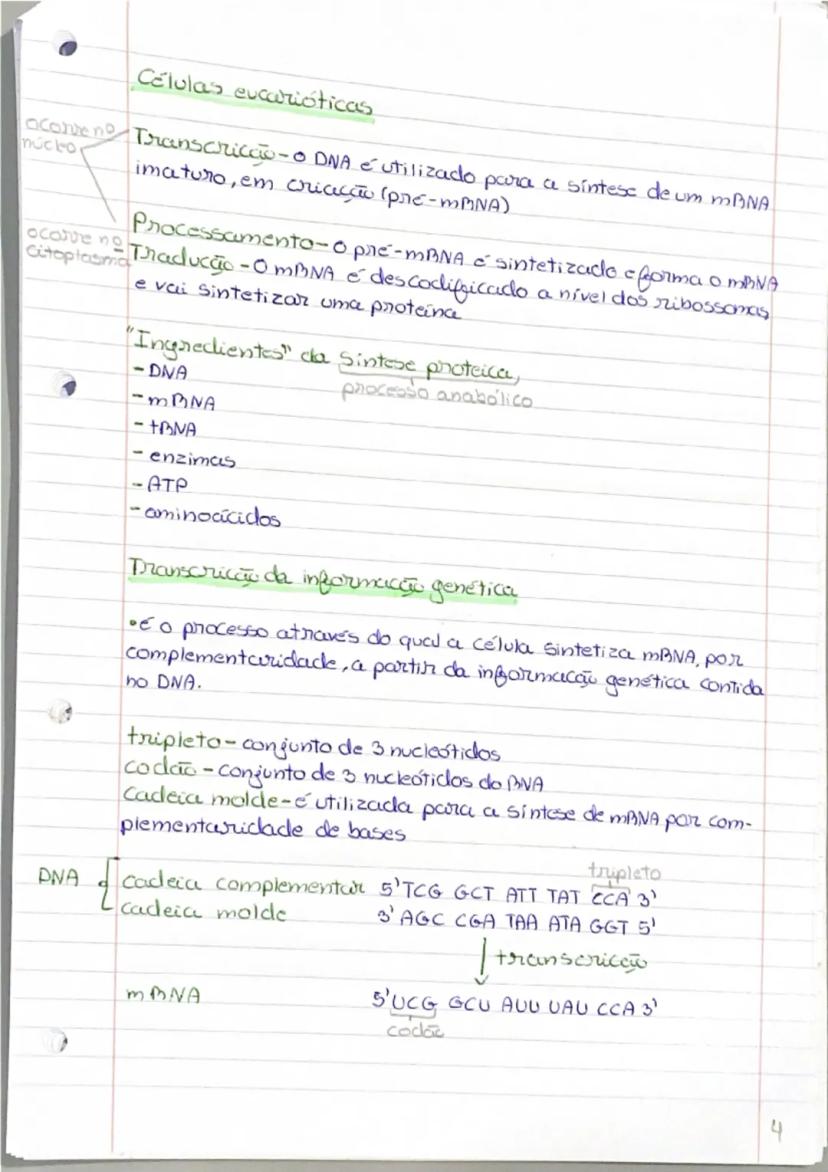 Células eucarióticas
ocorre no
núcleo
Transcrição - o DNA é utilizado para a síntese de um mRNA
imaturo, em criação (pré-mRNA)
Processamento - O pré-mRNA é sintetizado e forma o mRNA
ocorre no
citoplasma
Tradução - O mRNA é descodificado a nível dos ribossomas
e vai sintetizar uma proteína
"Ingredientes" da síntese proteica,
processo anabólico
- DNA
- mRNA
- tRNA
- enzimas
- ATP
- aminoácidos
Transcrição da informação genética
• é o processo através do qual a célula sintetiza mRNA, por
complementaridade, a partir da informação genética contida
no DNA.
tripleto - conjunto de 3 nucleótidos
codão - conjunto de 3 nucleótidos do RNA
Cadeia molde - é utilizada para a síntese de mRNA por com-
plementaridade de bases
tripleto
DNA { cadeia complementar 5' TCG GCT ATT TAT CCA 3'
cadeia molde 3' AGC CGA TAA ATA GGT 5'
transcrição
mRNA 5' UCG GCU AUU UAU CCA 3'
codão
4